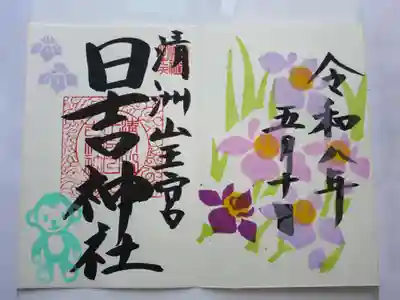 令和八年
五月十日
清洲山王宮
日吉神社